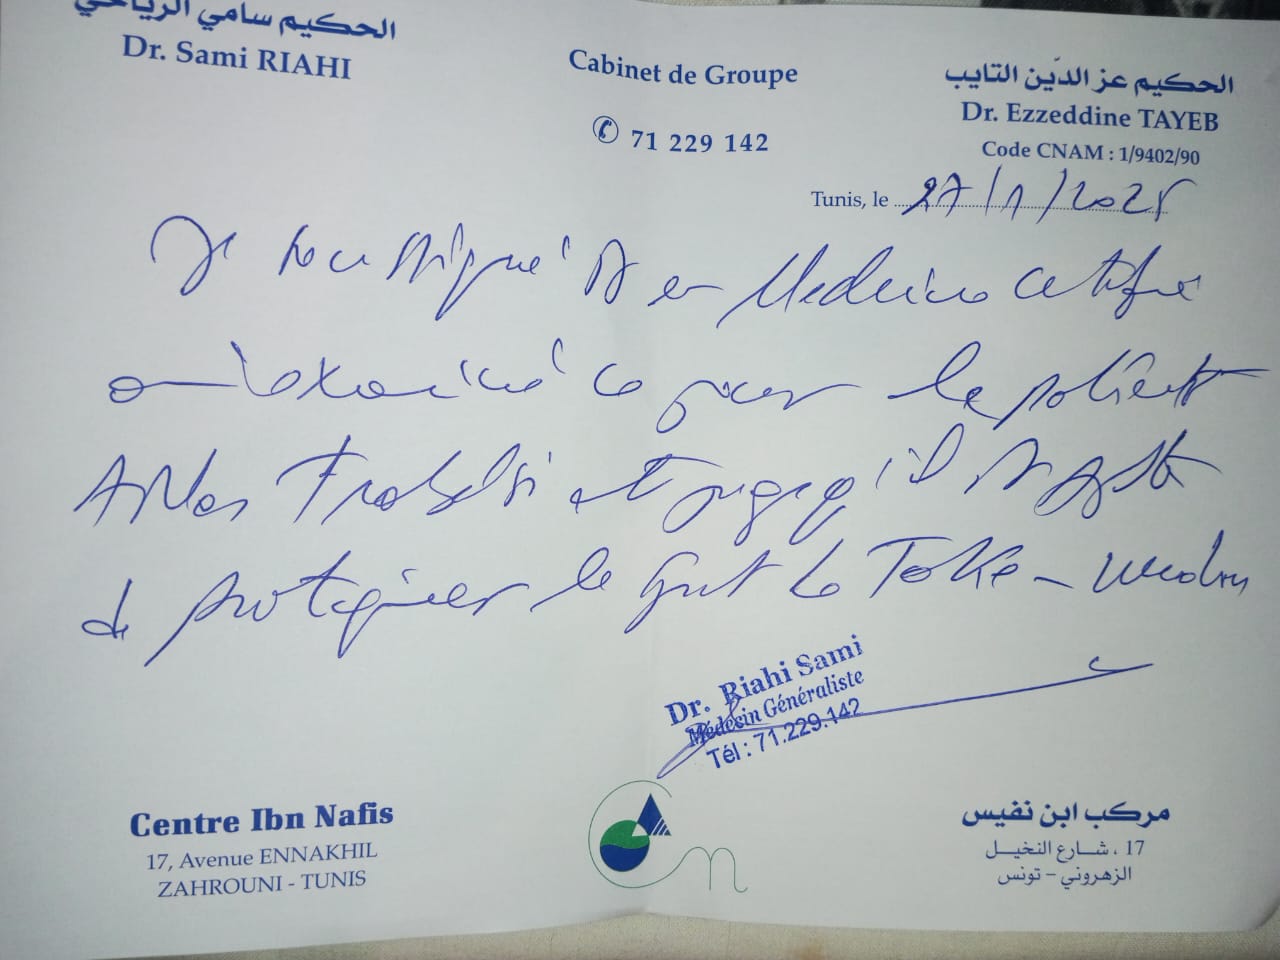 الحكيم سامي الرياحي
Dr. Sami RIAHI
Cabinet de Groupe
✆ 71 229 142
الحكيم عز الدّين التايب
Dr. Ezzeddine TAYEB
Code CNAM : 1/9402/90
Tunis, le 27/1/2025
Je soussigné Dr en Médecine certifie
avoir examiné ce jour le patient
Trabelsi et qu'il
de pratiquer le
Dr. Riahi Sami
Médecin Généraliste
Tél : 71.229.142
Centre Ibn Nafis
17, Avenue ENNAKHIL
ZAHROUNI - TUNIS
مركب ابن نفيس
17 ، شارع النخيل
الزهروني - تونس